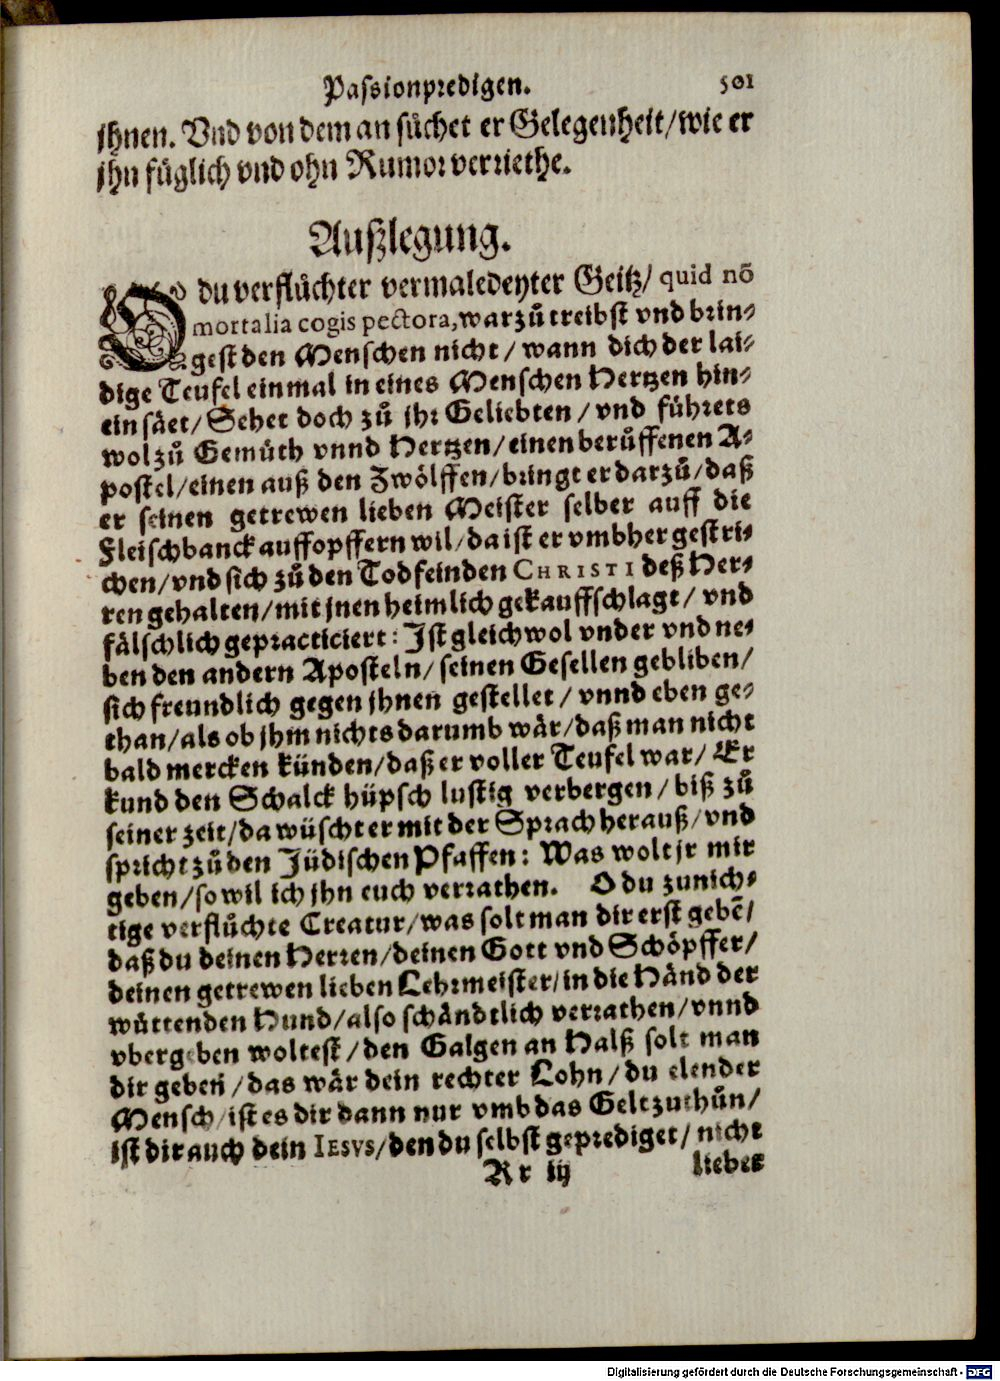 Passionpredigen. 501
jhnen. Vnd von dem an sůchet er Gelegenheit/wie er
jhn füglich vnd ohn Rumor verriethe.
Außlegung.
O du verflůchter vermaledeyter Geitz/ quid nõ
mortalia cogis pectora, warzů treibst vnd brin-
gest den Menschen nicht/ wann dich der lai-
dige Teufel einmal in eines Menschen Hertzen hin-
ein säet/ Sehet doch zů jhr Geliebten/ vnd führets
wol zů Gemüth vnnd Hertzen/ einen berůffenen A-
postel/ einen auß den Zwölffen/ bringt er darzů/ daß
er seinen getrewen lieben Meister selber auff die
Fleischbanck auffopffern wil/ da ist er vmbher gestri-
chen/ vnd sich zů den Todfeinden CHRISTI deß Her-
ren gehalten/ mit jnen heimlich gekauffschlagt/ vnd
fälschlich gepracticiert: Ist gleichwol vnder vnd ne-
ben den andern Aposteln/ seinen Gesellen gebliben/
sich freundlich gegen jhnen gestellet/ vnnd eben ge-
than/ als ob jhm nichts darumb wär/ daß man nicht
bald mercken künden/ daß er voller Teufel war/ Er
kund den Schalck hüpsch lustig verbergen/ biß zů
seiner zeit/ da wüscht er mit der Sprach herauß/ vnd
spricht zů den Jüdischen Pfaffen: Was wolt jr mir
geben/ so wil ich jhn euch verrathen. O du zunich-
tige verflůchte Creatur/ was solt man dir erst gebẽ/
daß du deinen Herren/ deinen Gott vnd Schöpffer/
deinen getrewen lieben Lehrmeister/ in die Händ der
wüttenden Hund/ also schändtlich verrathen/ vnnd
vbergeben woltest/ den Galgen an Halß solt man
dir geben/ das wär dein rechter Lohn/ du elender
Mensch/ ist es dir dann nur vmb das Gelt zuthůn/
ist dir auch dein IESVS/ den du selbst geprediget/ nicht
Rr iij lieber
Digitalisierung gefördert durch die Deutsche Forschungsgemeinschaft - DFG